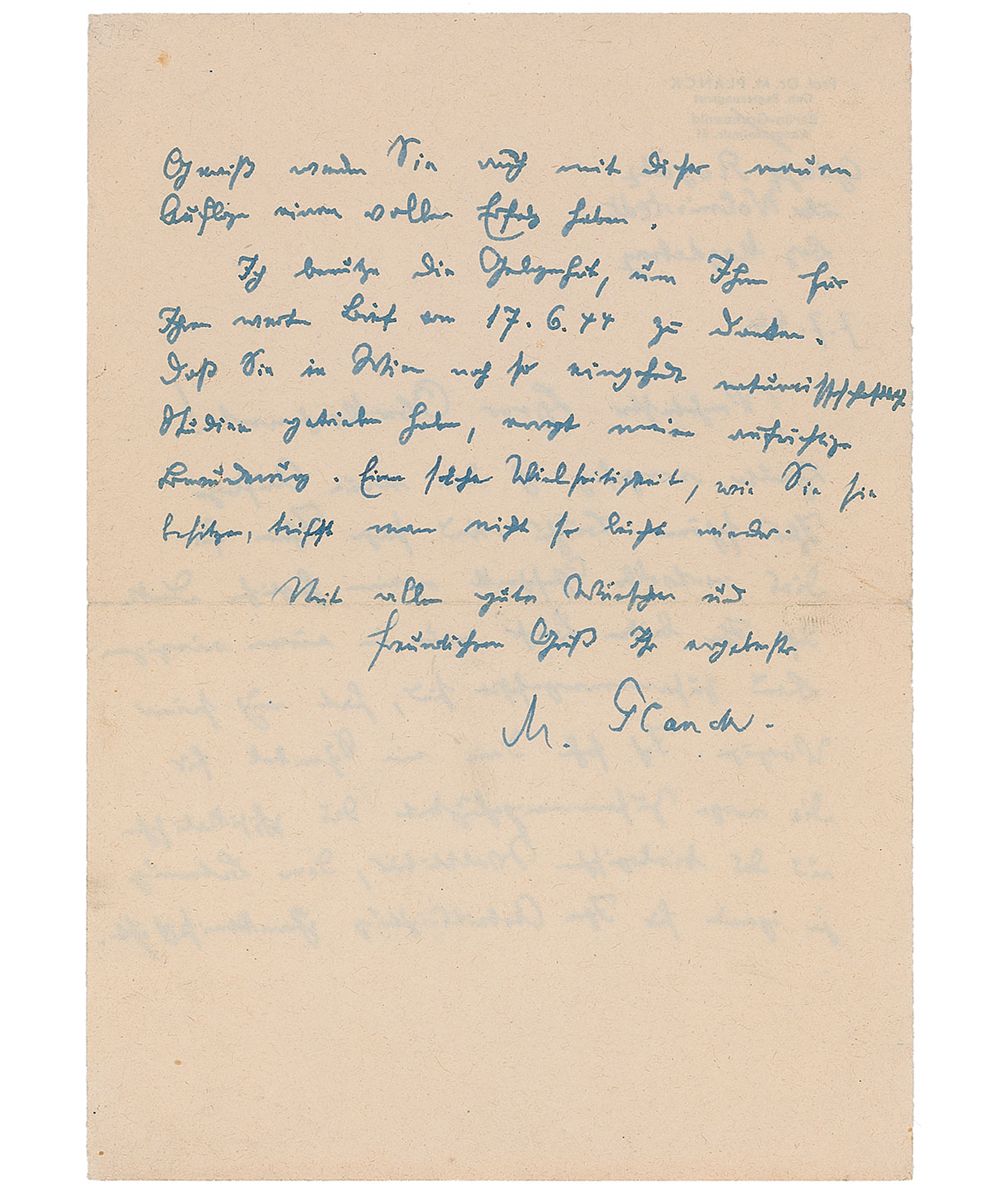 Gewiß werden Sie auch mit dieser neuen
Auflage einen vollen Erfolg haben.
Ich benutze die Gelegenheit, um Ihnen für
Ihren werten Brief vom 17.6.44 zu danken.
Daß Sie in Wien noch so eingehende naturwissenschaftliche
Studien getrieben haben, erregt meine aufrichtige
Bewunderung. Eine solche Vielseitigkeit, wie Sie sie
besitzen, trifft man nicht so leicht wieder.
Mit allen guten Wünschen und
freundlichem Gruß Ihr ergebenster
M. Planck.